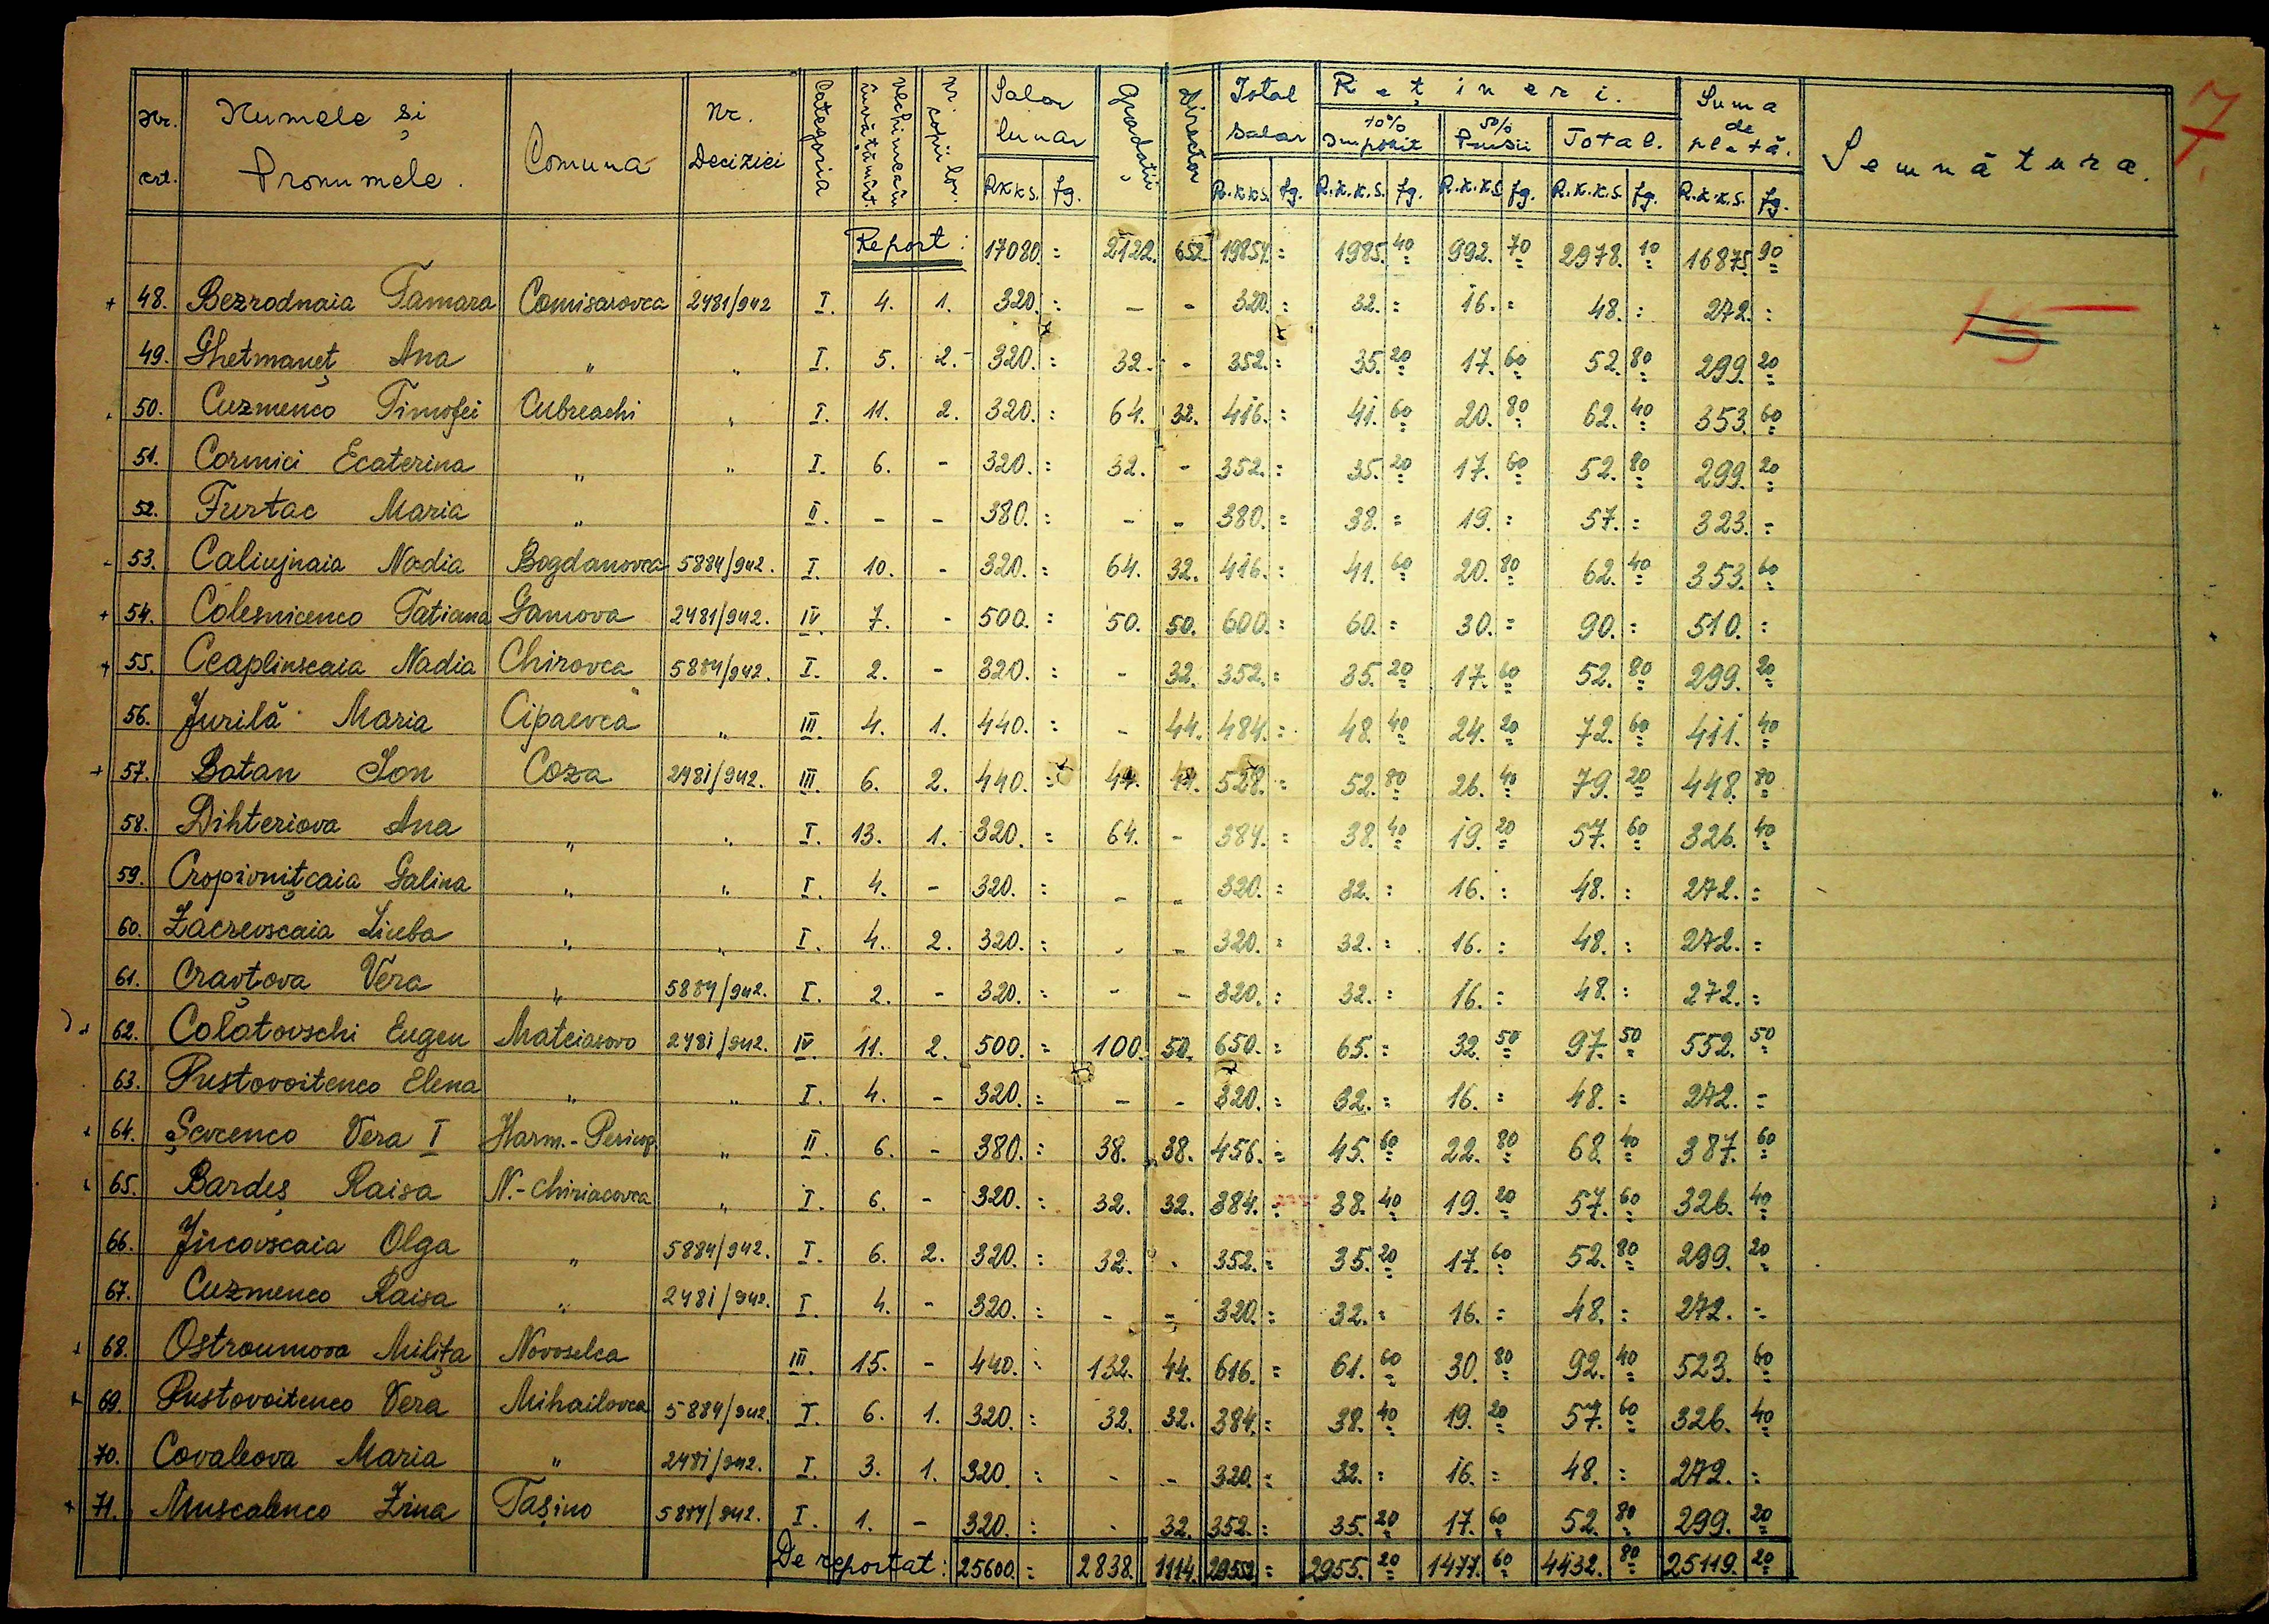 7.
Nr. crt. Numele și Pronumele. Comuna Nr. Deciziei Categoria vechimea în învățământ. Nr. copiilor. Salar lunar Gradații Director Total Salar Rețineri. Suma de plată. Semnătura.
10% Impozit 5% Pensii Total.
RKKS. fg. R.KKS. fg. R.K.K.S. fg. R.K.K.S. fg. R.K.K.S. fg. R.K.K.S. fg.
Report: 17080. = 2122. 652. 19854. = 1985. 40 992. 70 2978. 10 16875. 90
+ 48. Bezrodnaia Tamara Comisarovca 2481/942 I. 4. 1. 320. : – - 320. : 32. : 16. : 48. : 272. :
15
49. Ghetmaneț Ana „ „ I. 5. 2. 320. : 32. - 352. : 35. 20 17. 60 52. 80 299. 20
50. Cuzmenco Timofei Cubreachi „ I. 11. 2. 320. : 64. 32. 416. : 41. 60 20. 80 62. 40 353. 60
51. Cormici Ecaterina „ „ I. 6. - 320. : 32. - 352. : 35. 20 17. 60 52. 80 299. 20
52. Furtac Maria „ II. - - 380. : - - 380. = 38. = 19. : 57. : 323. =
- 53. Caliujnaia Nadia Bogdanovca 5884/942. I. 10. - 320. : 64. 32. 416. : 41. 60 20. 80 62. 40 353. 60
+ 54. Colesnicenco Tatiana Gamova 2481/942. IV 7. - 500. : 50. 50. 600. : 60. : 30. = 90. : 510. :
+ 55. Ceaplinscaia Nadia Chirovca 5884/942. I. 2. - 320. : - 32. 352. : 35. 20 17. 60 52. 80 299. 20
56. Jurilă Maria Cipaevca „ III. 4. 1. 440. : - 44. 484. : 48. 40 24. 20 72. 60 411. 40
+ 57. Botan Ion Coza 2481/942. III. 6. 2. 440. : 44. 44. 528. = 52. 80 26. 40 79. 20 448. 80
58. Dihteriova Ana „ „ I. 13. 1. 320. : 64. - 384. : 38. 40 19. 20 57. 60 326. 40
59. Cropivnițcaia Galina „ „ I. 4. - 320. : - - 320. : 32. : 16. : 48. : 272. :
60. Zacrevscaia Liuba „ „ I. 4. 2. 320. : - - 320. : 32. : 16. : 48. : 272. =
61. Cravțova Vera „ 5884/942. I. 2. - 320. : - - 320. : 32. : 16. : 48. : 272. :
62. Colătovschi Eugen Mateiasovo 2481/942. IV. 11. 2. 500. = 100. 50. 650. : 65. : 32. 50 97. 50 552. 50
63. Pustovoitenco Elena „ „ I. 4. - 320. : – - 320. : 32. : 16. : 48. : 272. =
+ 64. Șevcenco Vera I Harm.-Pericop. „ II. 6. - 380. : 38. 38. 456. = 45. 60 22. 80 68. 40 387. 60
65. Bardeș Raisa N.-Chiriacovca „ I. 6. - 320. : 32. 32. 384. : 38. 40 19. 20 57. 60 326. 40
66. Jucovscaia Olga „ 5884/942. I. 6. 2. 320. : 32. - 352. : 35. 20 17. 60 52. 80 299. 20
67. Cuzmenco Raisa „ 2481/942. I. 4. - 320. : - - 320. : 32. : 16. = 48. : 272. =
+ 68. Ostroumova Milița Novoselca III 15. - 440. : 132. 44. 616. = 61. 60 30. 80 92. 40 523. 60
+ 69. Pustovoitenco Vera Mihailovca 5884/942. I. 6. 1. 320. : 32. 32. 384. : 38. 40 19. 20 57. 60 326. 40
70. Covaleova Maria „ 2481/942. I. 3. 1. 320. : - - 320. : 32. : 16. = 48. : 272. :
+ 71. Muscalenco Zina Tașino 5884/942. I. 1. - 320. : - 32. 352. : 35. 20 17. 60 52. 80 299. 20
De reportat: 25600. = 2838. 1114. 29552. = 2955. 20 1477. 60 4432. 80 25119. 20